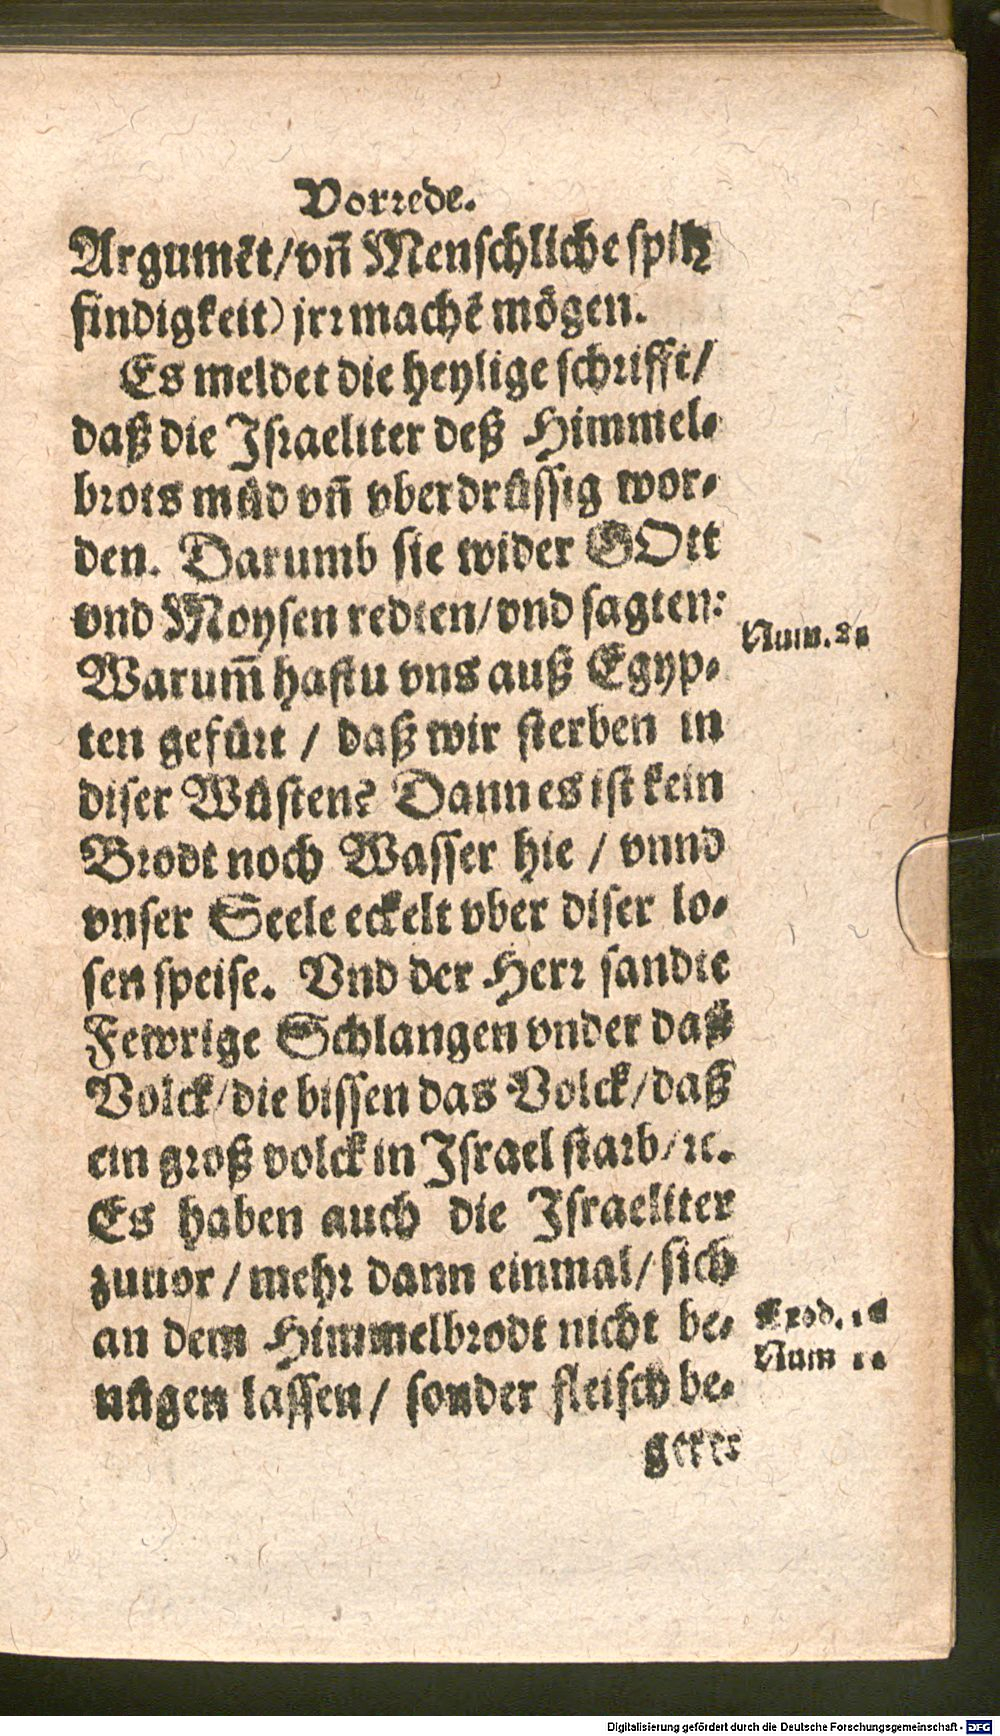 Vorrede.
Argumēt/vñ Menschliche spitz
findigkeit) jrr machē mögen.
Es meldet die heylige schrifft/
daß die Israeliter deß Himmel-
brots müd vñ vberdrüssig wor-
den. Darumb sie wider GOtt
vnd Moysen redten/vnd sagten:
Num. 21
Warum̄ hastu vns auß Egyp-
ten gefürt / daß wir sterben in
diser Wüsten? Dann es ist kein
Brodt noch Wasser hie / vnnd
vnser Seele eckelt vber diser lo-
sen speise. Vnd der Herr sandte
Fewrige Schlangen vnder daß
Volck/die bissen das Volck/daß
ein groß volck in Israel starb/ꝛc.
Es haben auch die Israeliter
zuuor / mehr dann einmal/sich
an dem Himmelbrodt nicht be-
Exod. 16
Num 11
nügen lassen/ sonder fleisch be-
geret
Digitalisierung gefördert durch die Deutsche Forschungsgemeinschaft - DFG